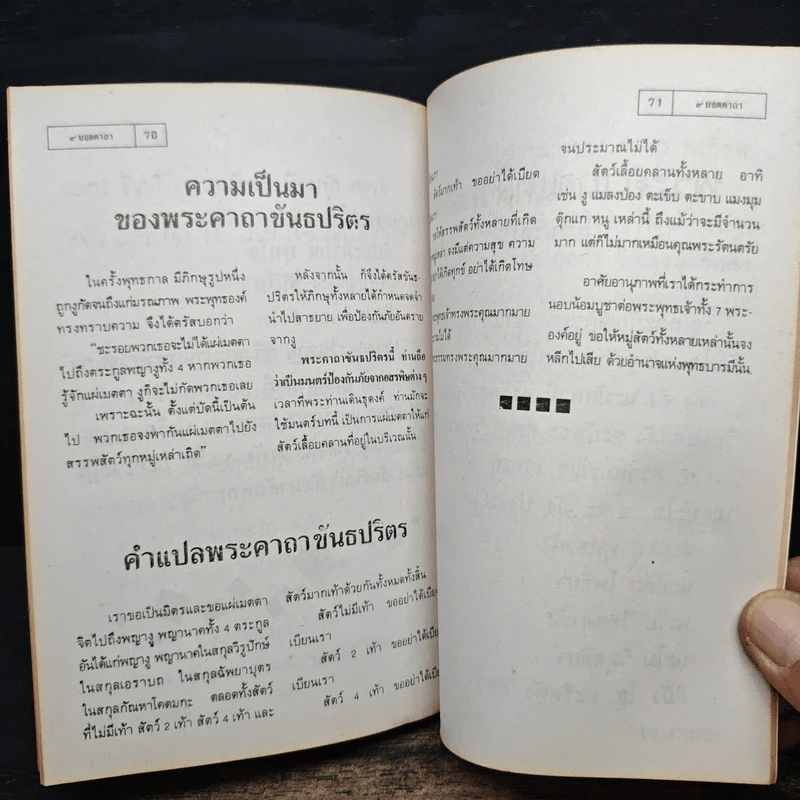 ๙ ยอดคาถา 70
ความเป็นมา
ของพระคาถาขันธปริตร
ในครั้งพุทธกาล มีภิกษุรูปหนึ่ง
ถูกงูกัดจนถึงแก่มรณภาพ พระพุทธองค์
ทรงทราบความ จึงได้ตรัสบอกว่า
"ชะรอยพวกเธอจะไม่ได้แผ่เมตตา
ไปถึงตระกูลพญางูทั้ง 4 หากพวกเธอ
รู้จักแผ่เมตตา งูก็จะไม่กัดพวกเธอเลย
เพราะฉะนั้น ตั้งแต่บัดนี้เป็นต้น
ไป พวกเธอจงพากันแผ่เมตตาไปยัง
สรรพสัตว์ทุกหมู่เหล่าเถิด"
หลังจากนั้น ก็จึงได้ตรัสขันธ-
ปริตรให้ภิกษุทั้งหลายได้กำหนดจดจำ
นำไปสาธยาย เพื่อป้องกันภัยอันตราย
จากงู
พระคาถาขันธปริตรนี้ ท่านถือ
ว่าเป็นมนตร์ป้องกันภัยจากอสรพิษต่างๆ
เวลาที่พระท่านเดินธุดงค์ ท่านมักจะ
ใช้มนตร์บทนี้ เป็นการแผ่เมตตาให้แก่
สัตว์เลื้อยคลานที่อยู่ในบริเวณนั้น
คำแปลพระคาถาขันธปริตร
เราขอเป็นมิตรและขอแผ่เมตตา
จิตไปถึงพญางู พญานาคทั้ง 4 ตระกูล
อันได้แก่พญางู พญานาคในสกุลวิรูปักษ์
ในสกุลเอราบถ ในสกุลฉัพยาบุตร
ในสกุลกัณหาโคตมกะ ตลอดทั้งสัตว์
ที่ไม่มีเท้า สัตว์ 2 เท้า สัตว์ 4 เท้า และ
สัตว์มากเท้าด้วยกันทั้งหมดทั้งสิ้น
สัตว์ไม่มีเท้า ขออย่าได้เบียด
เบียนเรา
สัตว์ 2 เท้า ขออย่าได้เบียด
เบียนเรา
สัตว์ 4 เท้า ขออย่าได้เบีย
71 ๙ ยอดคาถา
มากเท้า ขออย่าได้เบียด
สรรพสัตว์ทั้งหลายที่เกิด
จงมีแต่ความสุข ความ
ได้เกิดทุกข์ อย่าได้เกิดโทษ
พุทธเจ้าทรงพระคุณมากมาย
ไม่ได้
ทรงพระคุณมากมาย
จนประมาณไม่ได้
สัตว์เลื้อยคลานทั้งหลาย อาทิ
เช่น งู แมลงป่อง ตะเข็บ ตะขาบ แมงมุม
ตุ๊กแก หนู เหล่านี้ ถึงแม้ว่าจะมีจำนวน
มาก แต่ก็ไม่มากเหมือนคุณพระรัตนตรัย
อาศัยอานุภาพที่เราได้กระทำการ
นอบน้อมบูชาต่อพระพุทธเจ้าทั้ง 7 พระ-
องค์อยู่ ขอให้หมู่สัตว์ทั้งหลายเหล่านั้นจง
หลีกไปเสีย ด้วยอำนาจแห่งพุทธบารมีนั้น.